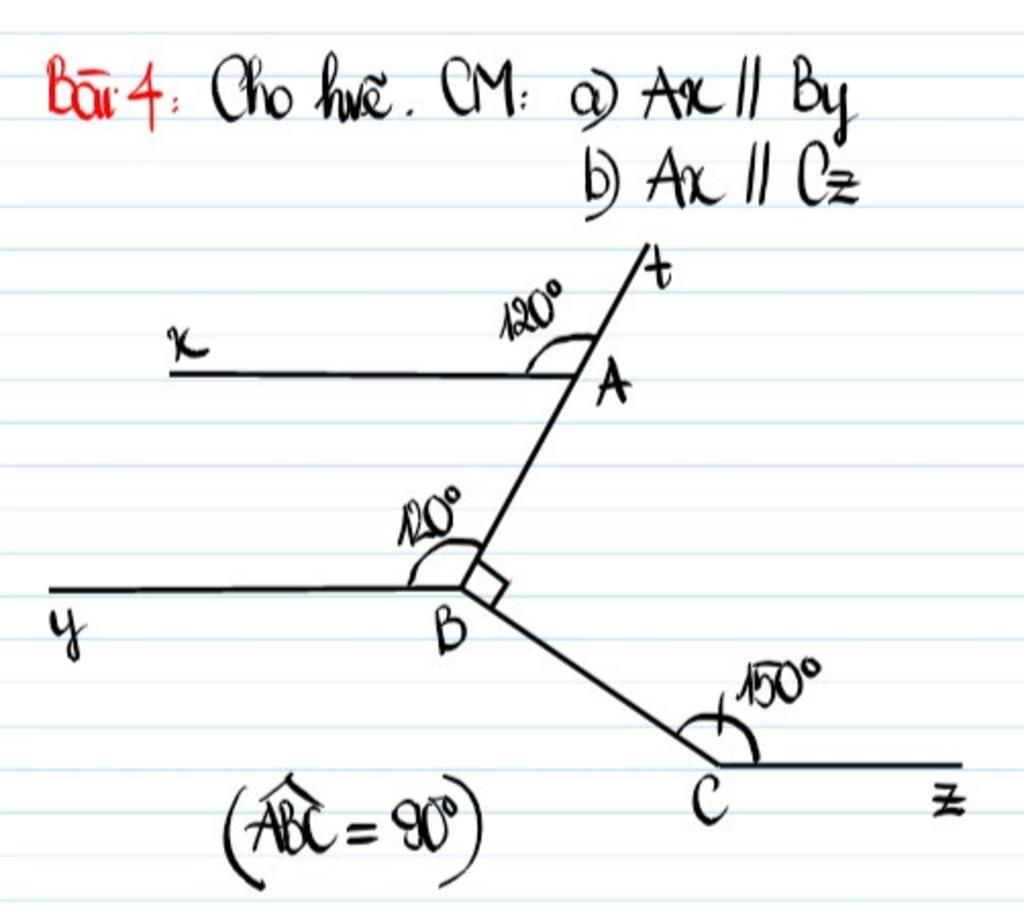 Bài 4: Cho hvẽ. CM: a) Ax // By
b) Ax // Cz
t
120°
x
A
120°
y
B
150°
C
z
(ABC = 90°)